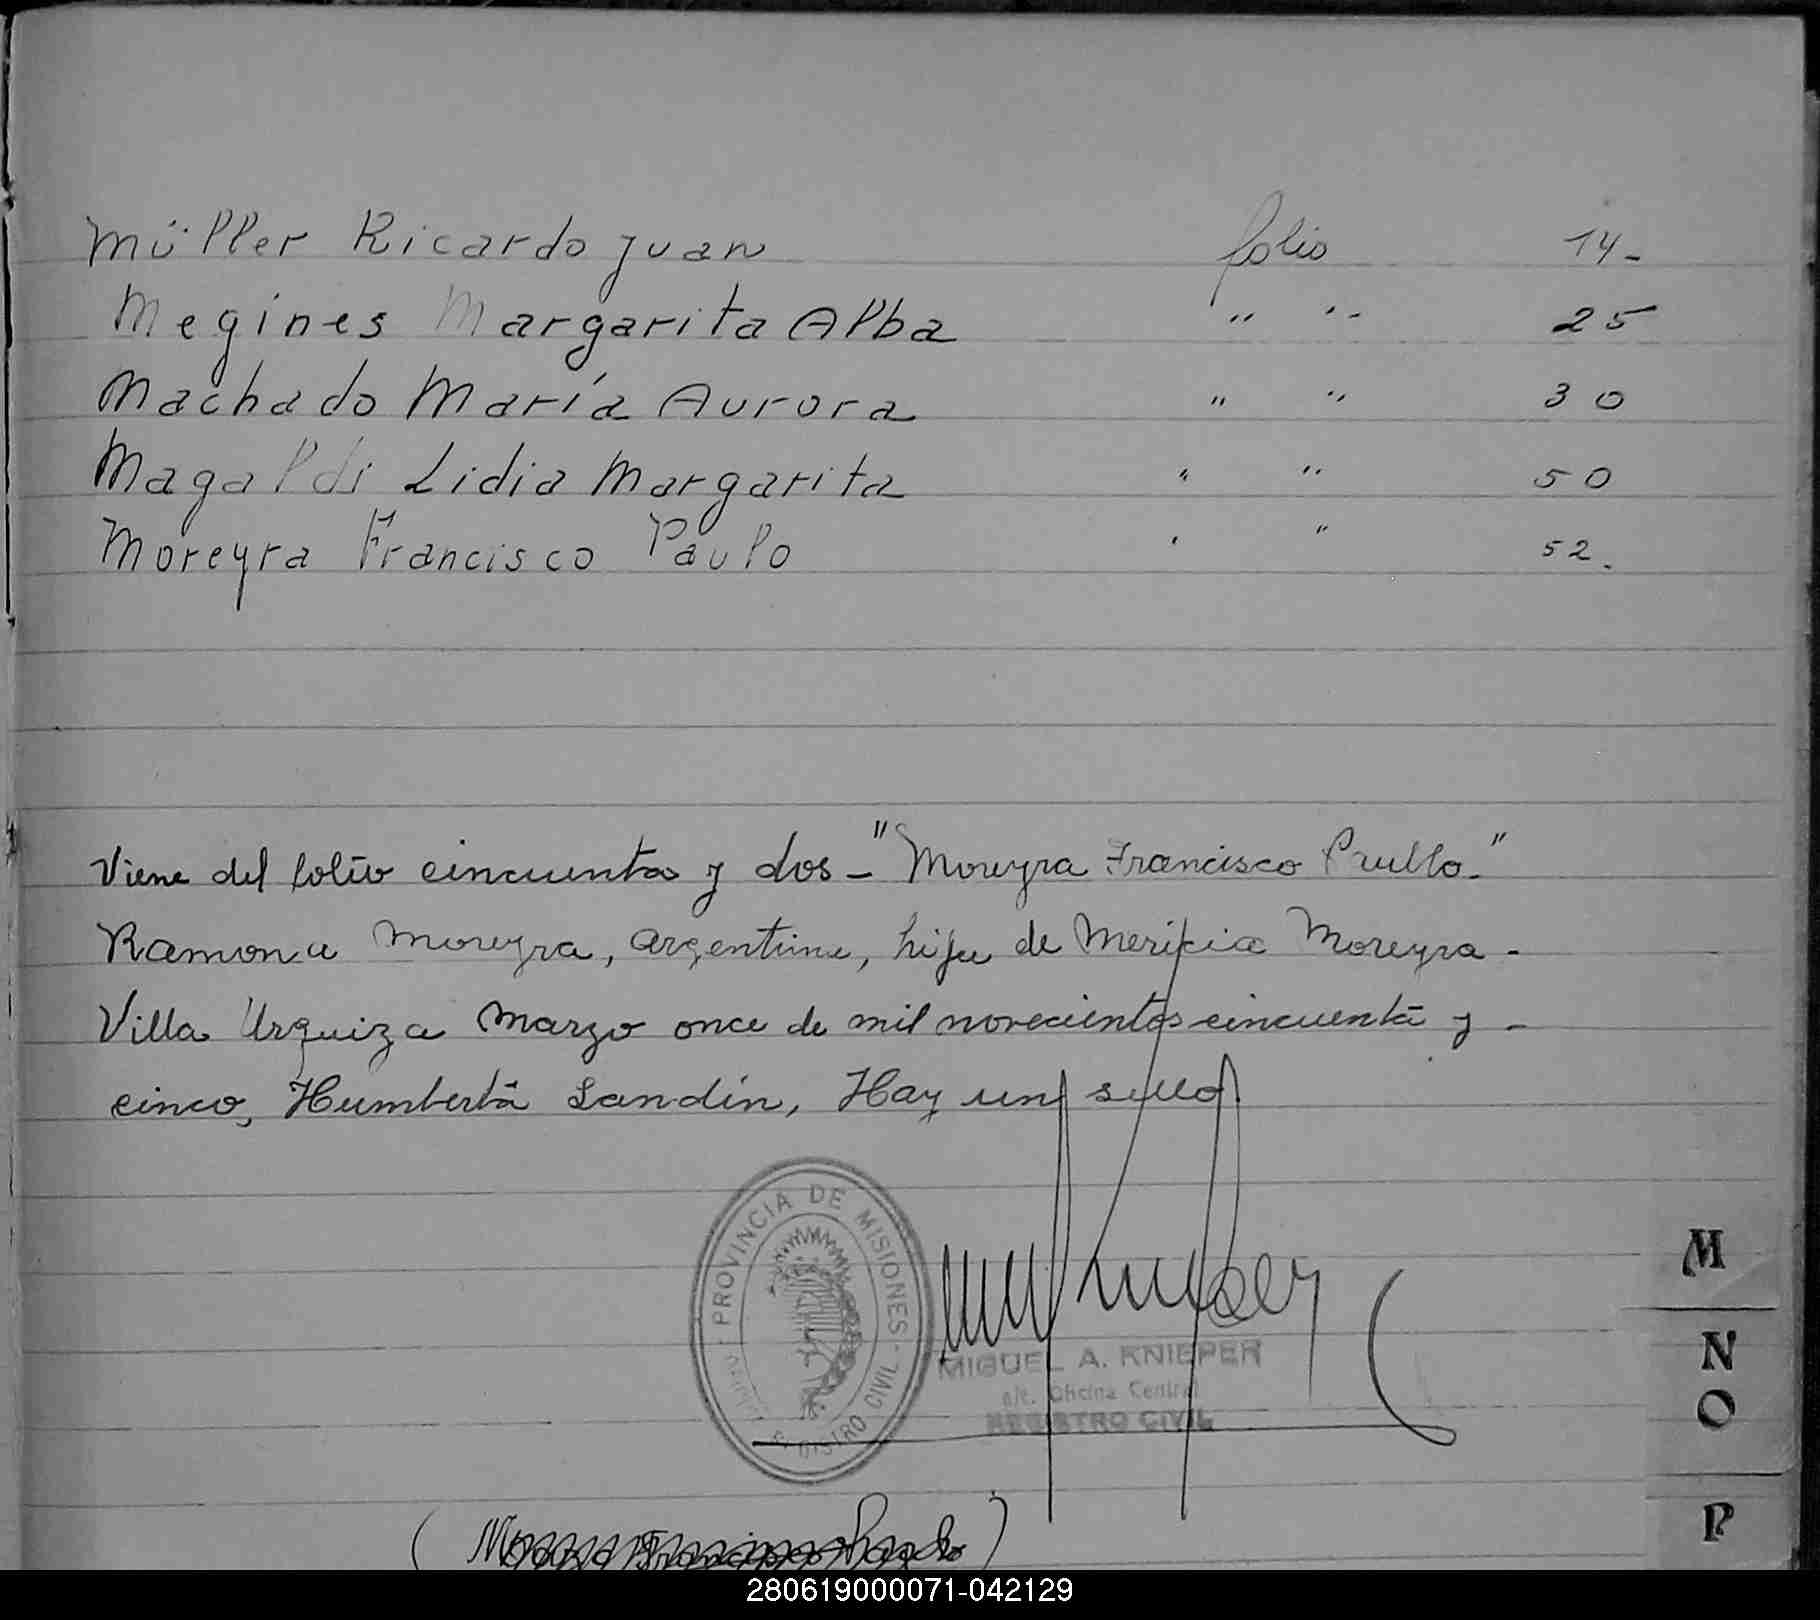 Müller Ricardo Juan folio 14-
Megines Margarita Alba " " 25
Machado María Aurora " " 30
Magaldi Lidia Margarita " " 50
Moreyra Francisco Paulo " " 52.
Viene del folio cincuenta y dos - "Moreyra Francisco Paulo."
Ramona Moreyra, argentina, hija de Moreyra -
Villa Urquiza Marzo once de mil novecientos cincuenta y -
cinco, Humberto Landin, Hay un sello.
PROVINCIA DE MISIONES
REGISTRO CIVIL
MIGUEL A. KNIEPER
Oficina Central
REGISTRO CIVIL
M
N
O
P
280619000071-042129